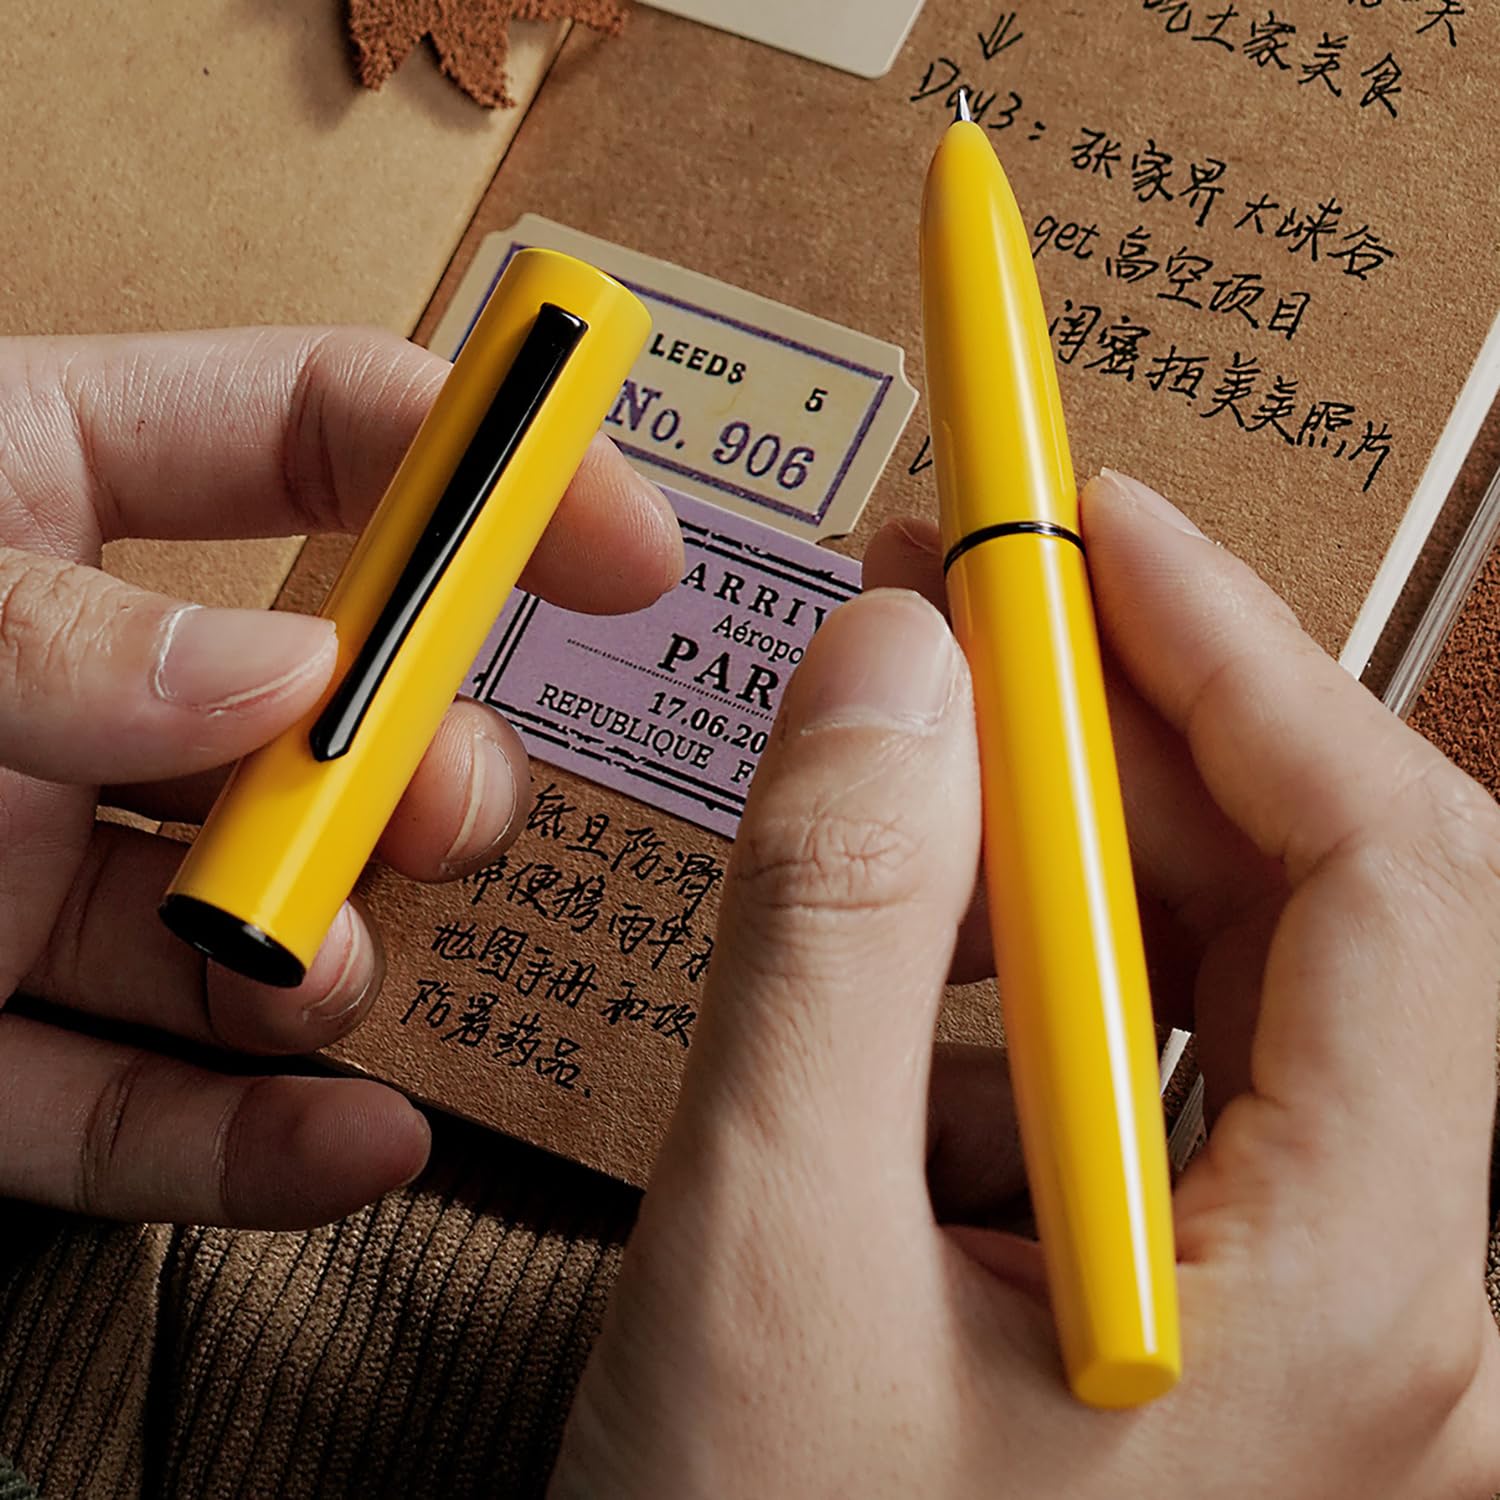 吃土家美食
Day3：张家界大峡谷
get高空项目
闺蜜拍美美照片
LEEDS 5
No. 906
ARRIV
Aéropo
PAR
17.06.20
REPUBLIQUE F
纸且防潮
带便携雨伞
地图手册和攻
防暑药品、